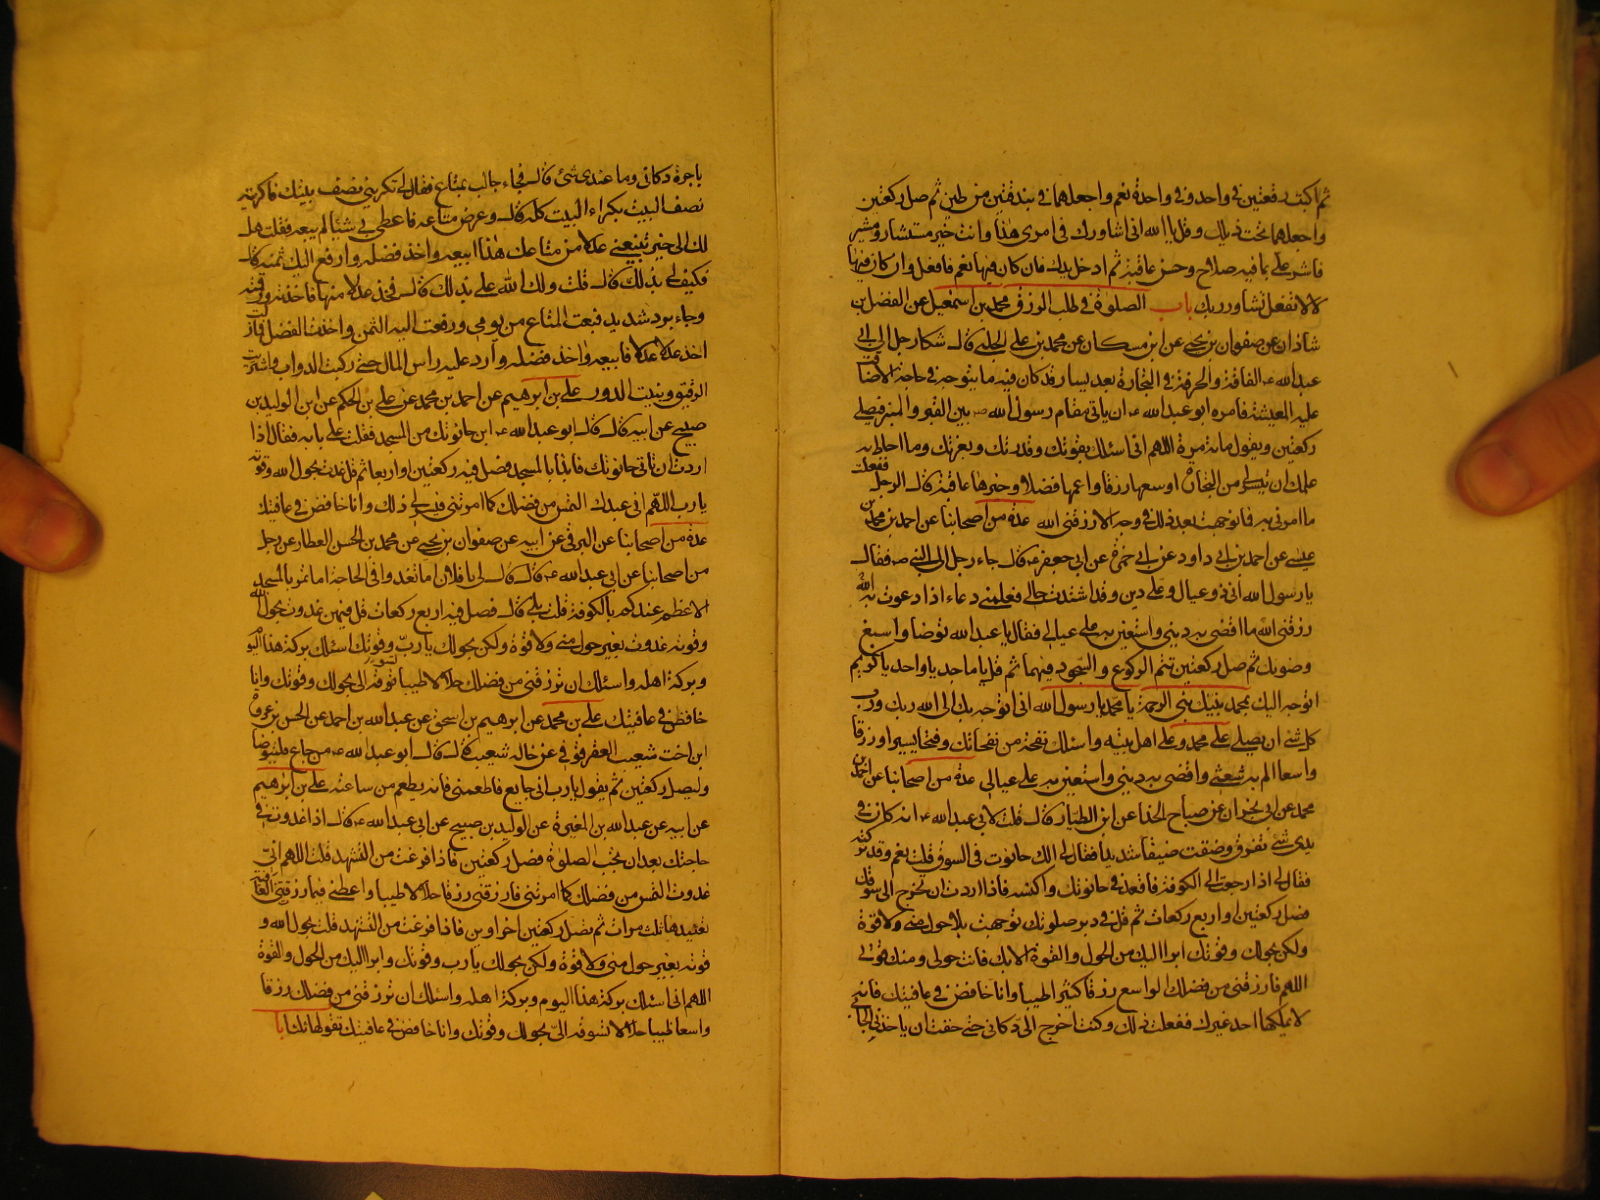 ثم اكتب رقعتين في واحد و في واحدة نعم واجعلهما في بندقتين من طين ثم صل ركعتين
واجعلهما تحت ذيلك وقل يا الله اني اشاورك في امري هذا وانت خير مستشار ومشير
فاشر علي بما فيه صلاح وحسن عاقبة ثم ادخل يدك فان كان فيها نعم فافعل وان كان فيها
لا لا تفعل تشاور ربك باب الصلوة في طلب الرزق محمد بن اسمعيل عن الفضل بن
شاذان عن صفوان بن يحيى عن ابن مسكان عن محمد بن علي الحلبي قال شكا رجل الى ابي
عبدالله ع الفاقة والحرفة في التجارة بعد يسار قد كان فيه ما يتوجه في حاجة الا ضاقت
عليه المعيشة فامره ابو عبدالله ع ان ياتي مقام رسول الله ص بين القبر والمنبر فيصلي
ركعتين ويقول مائة مرة اللهم اني اسئلك بقوتك وقدرتك وبعزتك وما احاط به
علمك ان تيسر لي من التجارة اوسعها رزقا واعمها فضلا وخيرها عاقبة قال الرجل ففعلت
ما امرني به فما توجهت بعد ذلك في وجه الا رزقني الله عدة من اصحابنا عن احمد بن محمد بن
عيسى عن احمد بن ابي داود عن ابي حمزة عن ابي جعفر ع قال جاء رجل الى النبي ص فقال
يا رسول الله اني ذو عيال وعلي دين وقد اشتدت حالي فعلمني دعاء اذا دعوت به الله
رزقني الله ما اقضي به ديني واستعين به على عيالي فقال يا عبدالله توضا واسبغ
وضوئك ثم صل ركعتين تتم الركوع والسجود فيهما ثم قل يا ماجد يا واحد يا كريم
اتوجه اليك بمحمد نبيك نبي الرحمة يا محمد يا رسول الله اني اتوجه بك الى الله ربك ورب
كل شئ ان يصلي على محمد وعلى اهل بيته واسئلك نفحة من نفحاتك وفتحا يسيرا ورزقا
واسعا الم به شعثي واقضي به ديني واستعين به على عيالي عدة من اصحابنا عن احمد بن
محمد عن ابن ابي نجران عن صباح الحذا عن ابن الطيار قال قلت لابي عبدالله ع انه كان في
يدي شئ تفرق وضقت ضيقا شديدا فقال لي الك حانوت في السوق قلت نعم وقد تركته
فقال لي اذا رجعت الى الكوفة فاقعد في حانوتك واكنسه فاذا اردت ان تخرج الى سوقك
فصل ركعتين او اربع ركعات ثم قل في دبر صلوتك توجهت بلا حول مني ولا قوة
ولكن بحولك وقوتك ابرا اليك من الحول والقوة الا بك فانت حولي ومنك قوتي
اللهم فارزقني من فضلك الواسع رزقا كثيرا طيبا وانا خافض في عافيتك فانه
لا يملكها احد غيرك ففعلت ذلك وكنت اخرج الى دكاني حتى خفت ان ياخذني الجابي
باجرة دكاني وما عندي شئ قال فجاء جالب بمتاع فقال لي تكريني نصف بيتك فاكريته
نصف البيت بكراء البيت كله قال وعرض متاعه فاعطي به شيئا لم يبعه فقلت هل
لك الى خير تبيعني عدلا من متاعك هذا ابيعه واخذ فضله وارفع اليك ثمنه قال
فكيف لي بذلك قال قلت ولك الله علي بذلك قال فخذ عدلا منها فاخذته ورقمته
وجاء برد شديد فبعت المتاع من يومي ورفعت اليه الثمن واخذت الفضل فما زلت
اخذ عدلا عدلا فابيعه واخذ فضله وارد عليه راس المال حتى ركبت الدواب واشتريت
الرقيق وبنيت الدور علي بن ابرهيم عن احمد بن محمد عن علي بن الحكم عن ابن الوليد بن
صبيح عن ابيه قال قال ابو عبدالله ع اين حانوتك من المسجد فقلت على بابه فقال اذا
اردت ان تاتي حانوتك فابدا بالمسجد فصل فيه ركعتين او اربعا ثم قل غدوت بحول الله وقوته
يا رب اللهم اني عبدك التمس من فضلك كما امرتني فيسر لي ذلك وانا خافض في عافيتك
عدة من اصحابنا عن البرقي عن ابيه عن صفوان بن يحيى عن محمد بن الحسن العطار عن رجل
من اصحابنا عن ابي عبدالله ع قال قال لي يا فلان اما تغدوا في الحاجة اما تمر بالمسجد
الاعظم عندكم بالكوفة قلت بلى قال فصل فيه اربع ركعات قل فيهن غدوت بحول الله
وقوته غدوت بغير حول مني ولا قوة ولكن بحولك يا رب وقوتك اسئلك بركة هذا اليوم
وبركة اهله واسئلك ان ترزقني من فضلك حلالا طيبا تسوقه الي بحولك وقوتك وانا
خافض في عافيتك علي بن محمد عن ابرهيم بن اسحق عن عبدالله بن احمد عن الحسن بن عروة
ابن اخت شعيب العقرقوفي عن خاله شعيب قال قال ابو عبدالله ع من جاع فليتوضا
وليصل ركعتين ثم يقول يا رب اني جايع فاطعمني فانه يطعم من ساعته علي بن ابرهيم
عن ابيه عن عبدالله بن المغيرة عن الوليد بن صبيح عن ابي عبدالله ع قال اذا غدوت في
حاجتك بعد ان تجب الصلوة فصل ركعتين فاذا فرغت من التشهد قلت اللهم اني
غدوت التمس من فضلك كما امرتني فارزقني رزقا حلالا طيبا واعطني فيما رزقتني العافية
تعيدها ثلث مرات ثم تصل ركعتين اخراوين فاذا فرغت من التشهد قلت بحول الله و
قوته بغير حول مني ولا قوة ولكن بحولك يا رب وقوتك وابرا اليك من الحول والقوة
اللهم اني اسئلك بركة هذا اليوم وبركة اهله واسئلك ان ترزقني من فضلك رزقا
واسعا طيبا حلالا تسوقه الي بحولك وقوتك وانا خافض في عافيتك تقولها ثلثا با